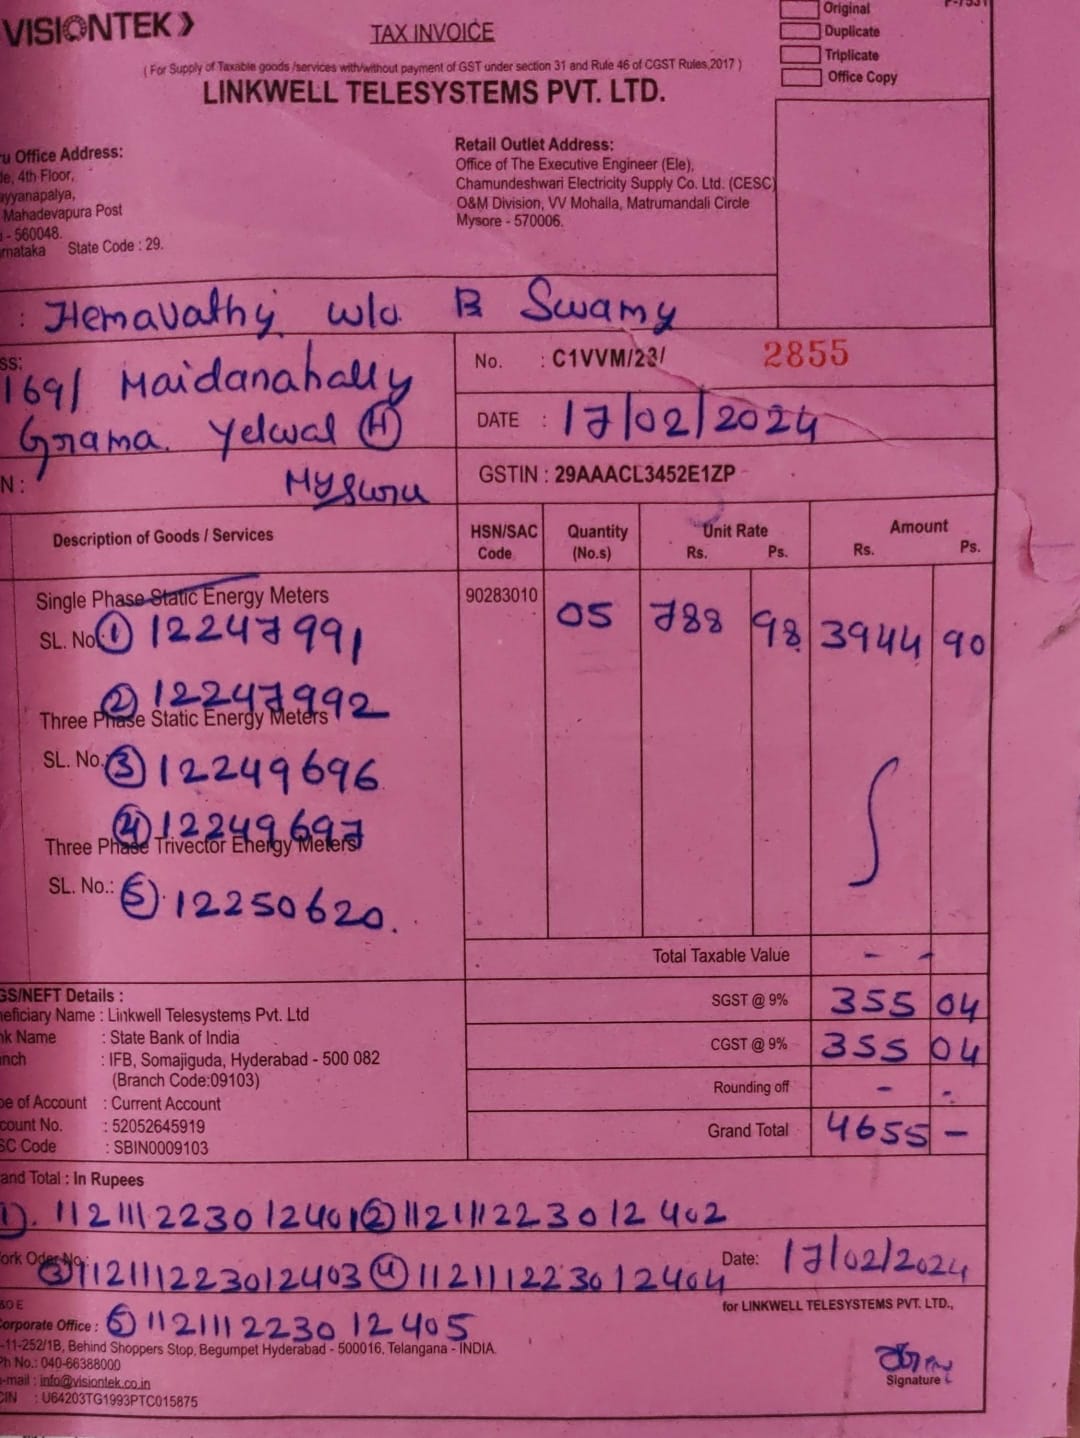 VISIONTEK
TAX INVOICE
Original
Duplicate
Triplicate
Office Copy
( For Supply of Taxable goods /services with/without payment of GST under section 31 and Rule 46 of CGST Rules,2017 )
LINKWELL TELESYSTEMS PVT. LTD.
Office Address:
4th Floor,
Mahadevapura Post
- 560048.
State Code : 29.
Retail Outlet Address:
Office of The Executive Engineer (Ele),
Chamundeshwari Electricity Supply Co. Ltd. (CESC)
O&M Division, VV Mohalla, Matrumandali Circle
Mysore - 570006.
: Hemavathy w/o. B Swamy
169/ Maidanahally
Grama. Yelwal (H)
Mysuru
No. : C1VVM/23/ 2855
DATE : 17/02/2024
GSTIN : 29AAACL3452E1ZP
Description of Goods / Services
HSN/SAC Code
Quantity (No.s)
Unit Rate Rs. Ps.
Amount Rs. Ps.
Single Phase Static Energy Meters 90283010 05 788 98 3944 90
SL. No. (1) 12247991
(2) 12247992
Three Phase Static Energy Meters
SL. No. (3) 12249696
(4) 12249697
Three Phase Trivector Energy Meters
SL. No.: (5) 12250620.
Total Taxable Value - -
SGST @ 9% 355 04
CGST @ 9% 355 04
Rounding off - -
Grand Total 4655 -
GS/NEFT Details :
Beneficiary Name : Linkwell Telesystems Pvt. Ltd
Name : State Bank of India
: IFB, Somajiguda, Hyderabad - 500 082
(Branch Code:09103)
of Account : Current Account
No. : 52052645919
Code : SBIN0009103
Total : In Rupees
1). 112111223012401 (2) 112111223012402
Oder No.: Date: 17/02/2024
(3) 112111223012403 (4) 112111223012404
for LINKWELL TELESYSTEMS PVT. LTD.,
Corporate Office : (5) 112111223012405
-11-252/1B, Behind Shoppers Stop, Begumpet Hyderabad - 500016, Telangana - INDIA.
Ph No.: 040-66388000
-mail : info@visiontek.co.in
CIN : U64203TG1993PTC015875
Signature